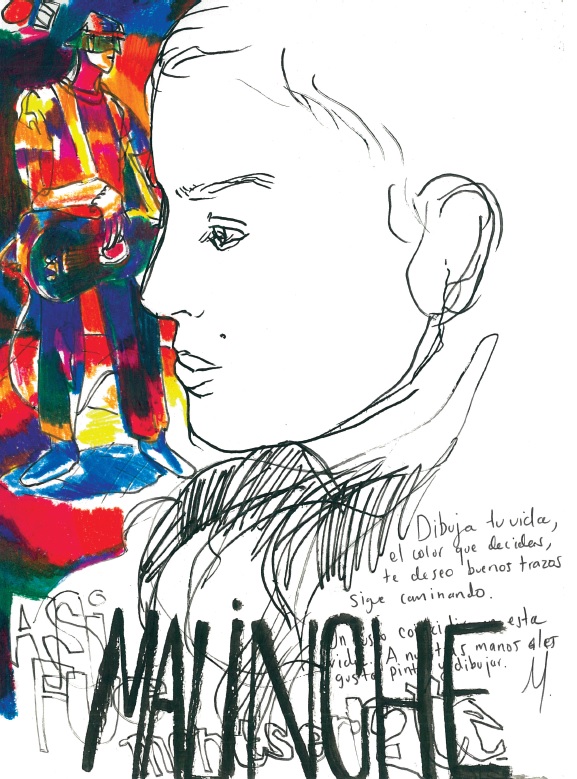 Dibuja tu vida,
el color que decidas,
te deseo buenos trazos
sigue caminando.
esta
vida. A nuestras manos les
gusta pintar y dibujar.
M.
ASí
MALINCHE